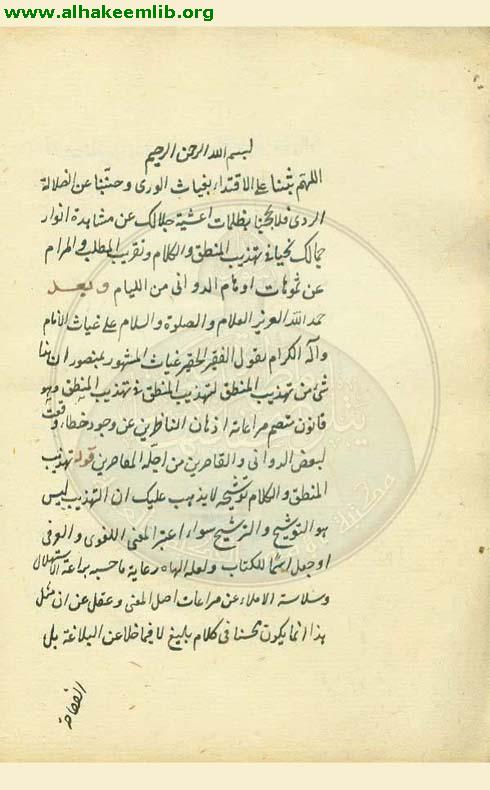 www.alhakeemlib.org
بسم الله الرحمن الرحيم
اللهم ثبتنا على الاقتداء بغياث الورى وجنبنا عن الضلالة
الردى فلا تحجبنا بظلمات اغشية جلالك عن مشاهدة انوار
جمالك تهذيب المنطق والكلام وتقريب المطلب والمرام
عن اوهام الدوانى من الليام وبعد
حمد الله العزيز العلام والصلوة والسلام على غياث الأنام
وآله الكرام يقول الفقير الحقير غياث المشهور بمنصور ان هذا
شئ من تهذيب المنطق لتهذيب المنطق فى تهذيب المنطق وهو
قانون تعصم مراعاته اذهان الناظرين عن وجوه خطاء وقعت
لبعض الدوانى والقاصرين من اجلة المعاصرين قوله تهذيب
المنطق والكلام توشيحه لا يذهب عليك ان التهذيب ليس
هو التوشيح والترشيح سواء اعتبر المعنى اللغوى والعرفى
او جعل اسما للكتاب ولعله الهاه رعاية ما حسبه براعة الاستهلال
وسلاسة الاملاء عن مراعات اصل المعنى وغفل عن ان مثل
هذا انما يكون تحسنا فى كلام بليغ لا فيما خلا عن البلاغة بل
الفصاحة